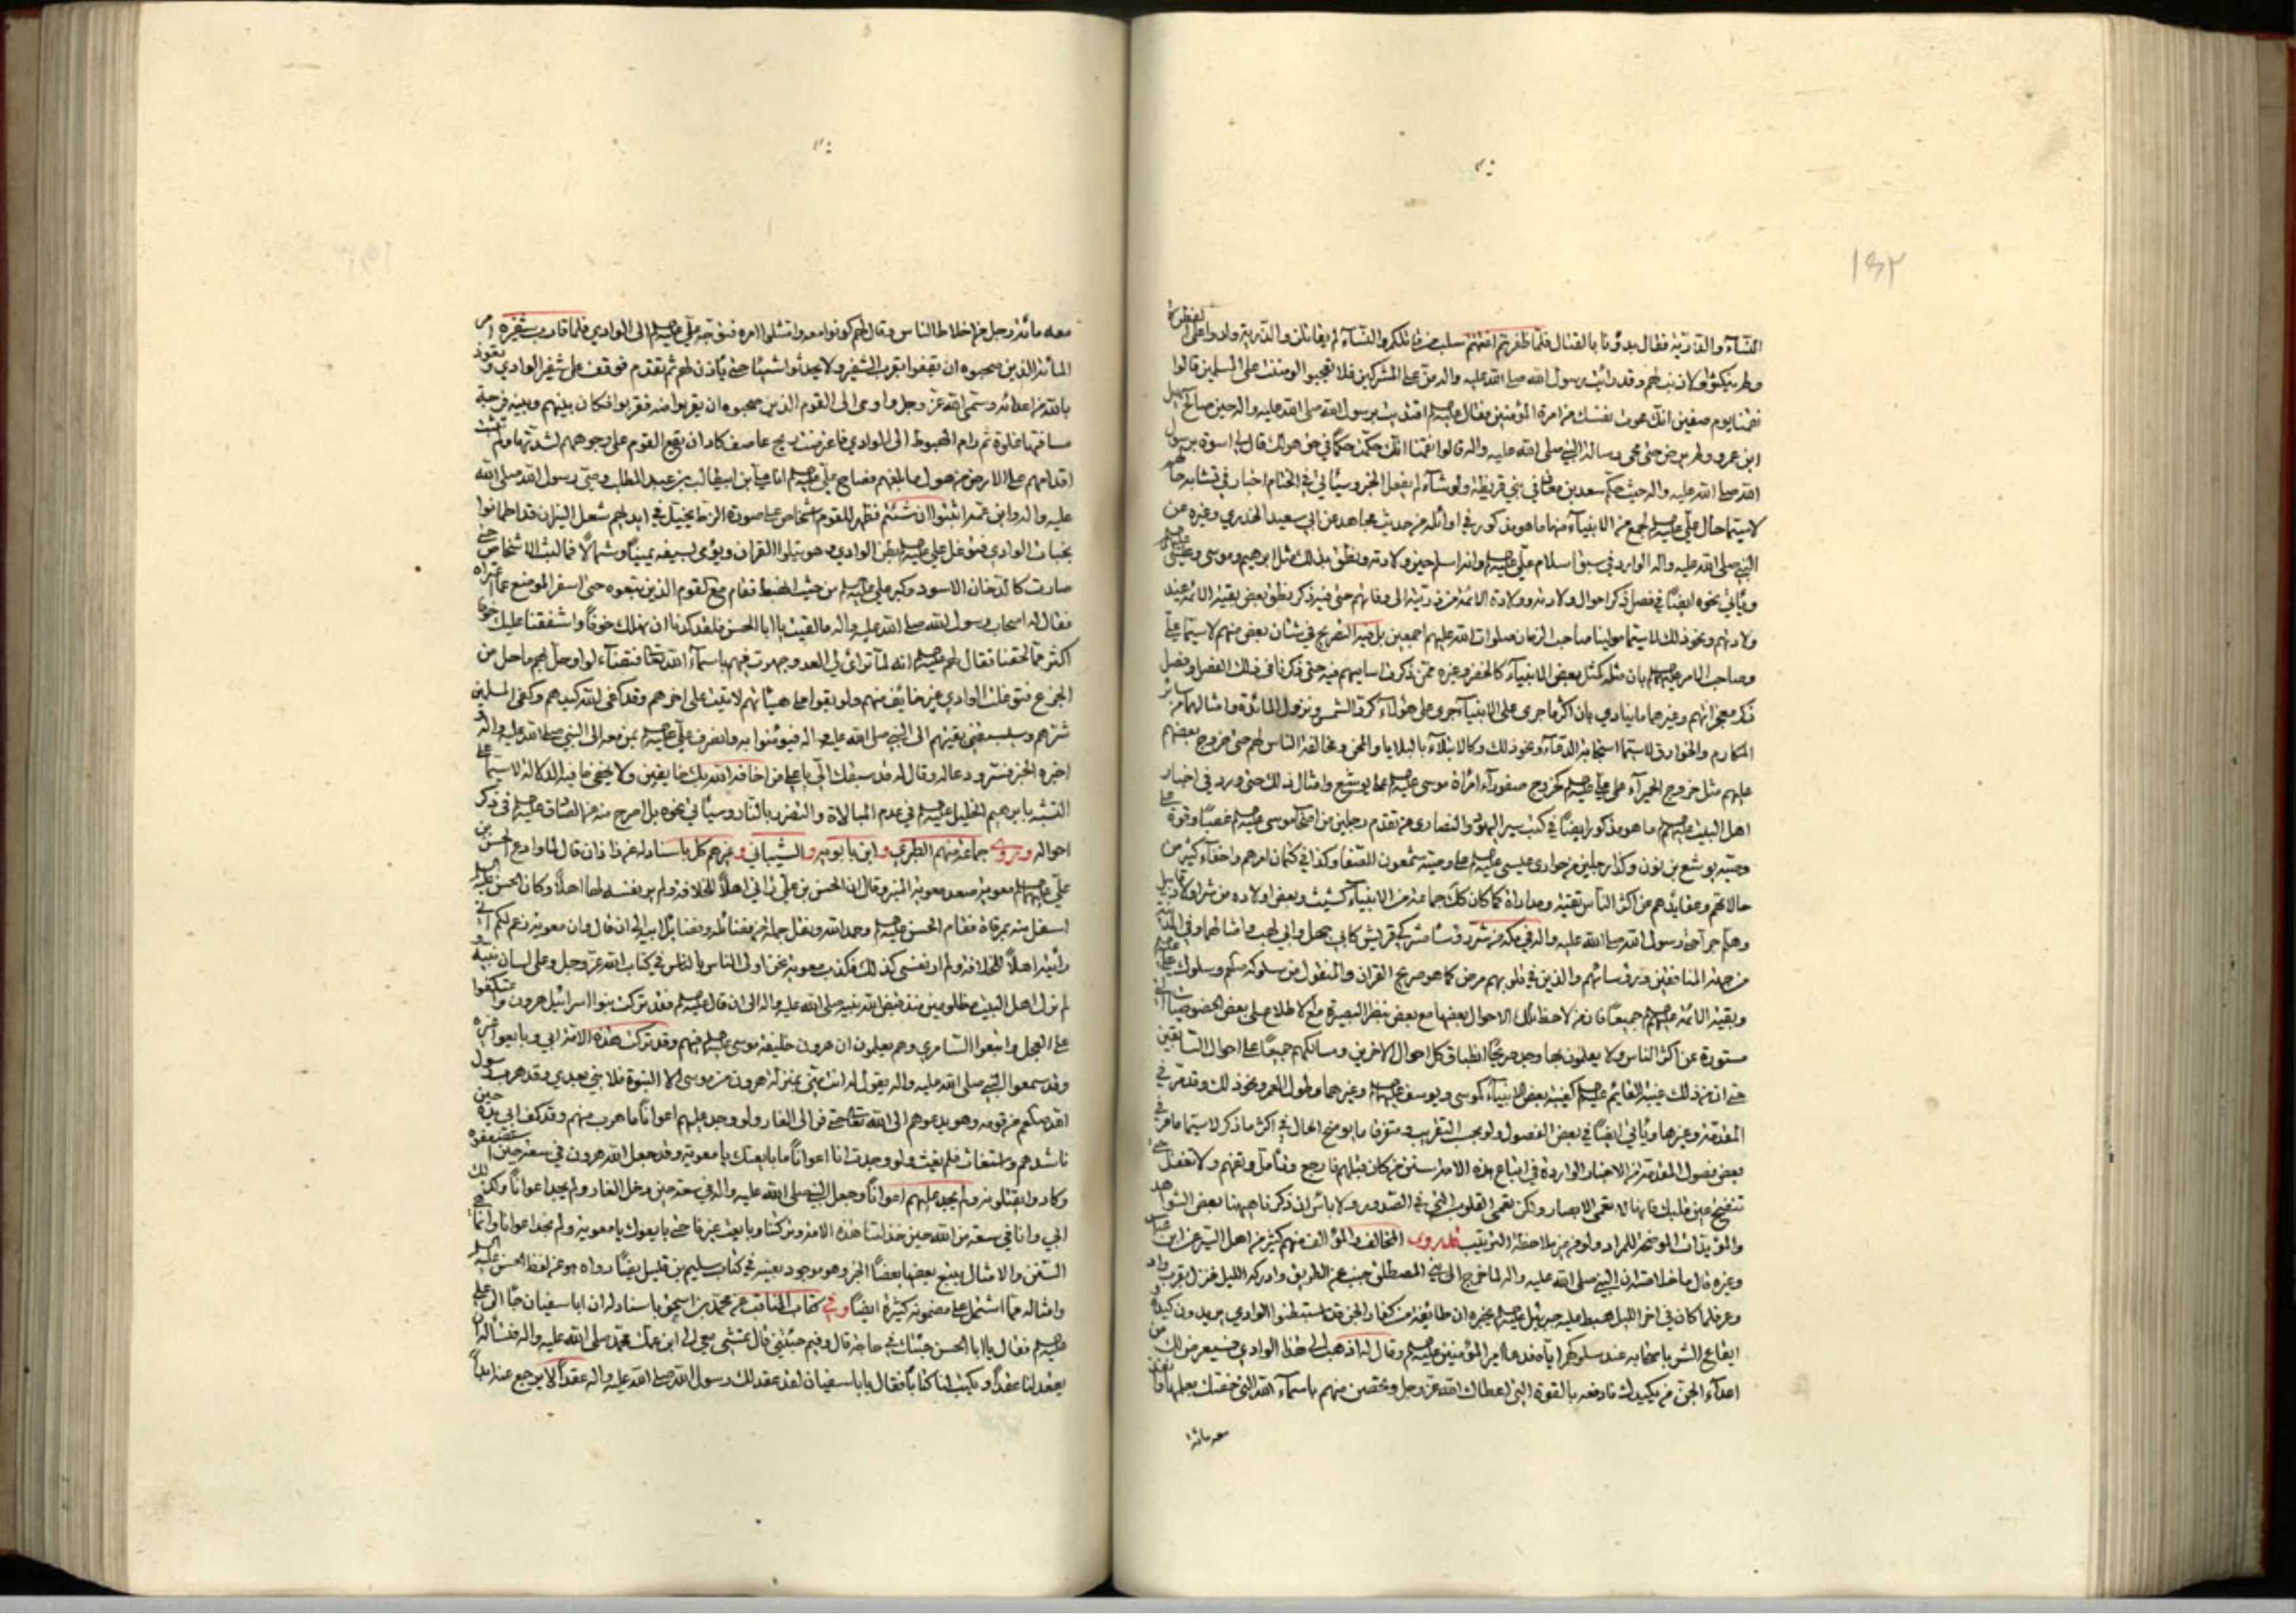 ١٥٢
النساء والذرية فقال بدؤنا بالقتال فلما ظفرتم اغنمتم سلبهم فان تلكم والنساء لم يقاتلن والذرية ولدوا على الفطرة
ولم ينكثوا ولا ذنب لهم وقد رأيت رسول الله صلى الله عليه واله من على المشركين فلا تعجبوا ان مننت على المسلمين قالوا
نقمنا يوم صفين انك محوت نفسك من امرة المؤمنين فقال عليه السلم اقتديت برسول الله صلى الله عليه واله حين صالح سهيل
ابن عمرو ولم يرض حتى محى رسالة النبي صلى الله عليه واله قالوا نقمنا انك حكمت حكما في حق هو لك قال لي اسوة برسول
الله صلى الله عليه واله حيث حكم سعد بن معاذ في بني قريظة ولو شاء لم يفعل الخبر وسيأتي في الختام اخبار في تشابه
لاسيما حال علي عليه السلم لجمع من الانبياء منها ما هو مذكور في اوائله من حديث مجاهد عن ابي سعيد الخدري وغيره عن
النبي صلى الله عليه واله الوارد في سبق اسلام علي عليه السلم وانه اسلم حين ولادته ونطق بذلك مثل ابرهيم وموسى وعيسى
ويأتي نحوه ايضا في فصل ذكر احوال ولادته وولادة الائمة من ذريته الى وفاتهم حتى فيه ذكر نطق بعض بقية الائمة عند
ولادتهم ونحو ذلك لاسيما مولينا صاحب الزمان صلوات الله عليهم اجمعين بل فيه التصريح في شأن بعض منهم لاسيما علي
وصاحب الامر عليهما السلم بان مثله كمثل بعض الانبياء كالخضر وغيره ممن ذكرت اساميهم فيه حتى ذكرنا في ذلك الفصل وفصل
ذكر معجزاتهم وغيرهما ما ينادي بان اكثر ما جرى على الانبياء جرى على هؤلاء كرد الشمس ونزول المائدة وامثالهما من سائر
المكارم والخوارق لاسيما استجابة الدعاء ونحو ذلك وكالابتلاء بالبلايا والمحن ومخالفة الناس لهم حتى خروج بعضهم
عليهم مثل خروج الحميراء على علي عليه السلم كخروج صفوراء امرأة موسى عليه السلم على يوشع وامثال ذلك حتى ورد في اخبار
اهل البيت عليهم السلم ما هو مذكور ايضا في كتب سير اليهود والنصارى من تقدم رجلين من اصحاب موسى عليه السلم غصبا وقوة على
وصيه يوشع بن نون وكذا رجلين من حواري عيسى عليه السلم على وصيه شمعون الصفا وكذا في كتمان امرهم واخفاء كثير من
حالاتهم وعقايدهم عن اكثر الناس تقية ومداراة كما كان كذلك جماعة من الانبياء كشيث وبعض اولاده من شر اولاد قابيل
وهلم جرا حتى رسول الله صلى الله عليه واله في مكة من شر رؤسا مشركي قريش كابي جهل وابي لهب وامثالهما وفي المدينة
من جهة المنافقين ورؤسائهم والذين في قلوبهم مرض كما هو صريح القران والمنقول من سلوكه معهم وسلوك علي عليه السلم
وبقية الائمة عليهم السلم جميعا فان من لاحظ تلك الاحوال بعضها مع بعض بنظر البصيرة مع الاطلاع على بعض الخصوصيات التي
مستورة عن اكثر الناس ولا يعلمون بها وجد صريحا انطباق كل احوال الاخرين ومسالكهم جميعا على احوال السابقين
حتى ان من ذلك غيبة القايم عليه السلم كغيبة بعض الانبياء كموسى ويوسف عليهما السلم وغيرهما وطول العمر ونحو ذلك وقد مر في
المقدمة وغيرها ويأتي ايضا في بعض الفصول ولو بحسب التقريب ومتفرقا ما يوضح الحال في اكثر ما ذكر لاسيما ما مر في
بعض فصول المقدمة من الاخبار الواردة في اتباع هذه الامة سنن من كان قبلهم فارجع وتأمل وتفهم ولا تغفل حتى
تنفتح عين قلبك فانها لا تعمى الابصار ولكن تعمى القلوب التي في الصدور ولا بأس ان ذكرنا ههنا بعض الشواهد
والمؤيدات الموضحة للمراد ولو من غير ملاحظة الترتيب فقد روى المخالف والمؤالف منهم كثير من اهل السير عن ابن عباس
وغيره قال ما خلاصته ان النبي صلى الله عليه واله لما خرج الى بني المصطلق جنب عن الطريق وادركه الليل فنزل بقرب واد
وعر فلما كان في اخر الليل هبط عليه جبرئيل عليه السلم يخبره ان طائفة من كفار الجن قد استبطنوا الوادي يريدون كيده و
ايقاع الشر باصحابه عند سلوكهم اياه فدعا امير المؤمنين عليه السلم وقال له اذهب الى هذا الوادي فسيعرض لك من
اعداء الجن من يكيدك فادفعه بالقوة التي اعطاك الله عز وجل وتحصن منهم باسماء الله التي خصك بعلمها وانفذ
معه مائة
معه مائة رجل من اخلاط الناس وقال لهم كونوا معه وامتثلوا امره فتوجه علي عليه السلم الى الوادي فلما قارب شفيره امر
المائة الذين صحبوه ان يقفوا بقرب الشفير ولا يحدثوا شيئا حتى يأذن لهم ثم تقدم فوقف على شفير الوادي وتعوذ
بالله من اعدائه وسمى الله عز وجل واومى الى القوم الذين صحبوه ان يقربوا منه فقربوا فكان بينهم وبينه فرجة
مسافتها غلوة ثم رام الهبوط الى الوادي فاعترضت ريح عاصف كاد ان يقع القوم على وجوههم لشدتها ولم تثبت
اقدامهم على الارض من هول ما لحقهم فصاح علي عليه السلم انا علي بن ابيطالب بن عبد المطلب وصي رسول الله صلى الله
عليه واله وابن عمه اثبتوا ان شئتم فظهر للقوم اشخاص على صورة الزط يخيل في ايديهم شعل النيران قد اطمأنوا
بجنبات الوادي فتوغل علي عليه السلم بطن الوادي وهو يتلوا القران ويومى بسيفه يمينا وشمالا فما لبث الاشخاص حتى
صارت كالدخان الاسود وكبر علي عليه السلم من حيث انهبط فقام مع القوم الذين تبعوه حتى اسفر الموضع عما اعتراه
فقال له اصحاب رسول الله صلى الله عليه واله ما لقيت يا ابا الحسن فلقد كدنا ان نهلك خوفا واشفقنا عليك
اكثر مما لحقنا فقال لهم عليه السلم انه لما تراى لي العدو جهرت فيهم باسماء الله تعالى فتضاءلوا وحل بهم ما حل من
الجزع فتوغلت الوادي غير خايف منهم ولو بقوا على هيئاتهم لاتيت على اخرهم وقد كفى الله كيدهم وكفى المسلمين
شرهم وستسبقني بقيتهم الى النبي صلى الله عليه واله فيؤمنوا به وانصرف علي عليه السلم بمن معه الى النبي صلى الله عليه واله و
اخبره الخبر فسر ودعا له وقال له قد سبقك الي يا علي من اخافه الله بك خايفين ولا يخفى ما فيه الدلالة لاسيما على
التشبه بابرهيم الخليل عليه السلم في عدم المبالاة والتضرر بالنار وسيأتي نحوه بل اصرح منه عن الصادق عليه السلم في ذكر
احواله وروى جماعة منهم الطبرسي وابن بابويه والشيباني وغيرهم كل باسناده عن زاذان قال لما وادع الحسن بن
علي عليهما السلم معوية صعد معوية المنبر وقال ان الحسن بن علي رآني اهلا للخلافة ولم ير نفسه لها اهلا وكان الحسن عليه السلم
اسفل منه بمرقاة فقام الحسن عليه السلم وحمد الله ونقل جملة من فضائله وفضائل ابيه الى ان قال وان معوية زعم لكم اني
رأيته اهلا للخلافة ولم ار نفسي كذلك فكذب معوية نحن اولى الناس بالناس في كتاب الله عز وجل وعلى لسان نبيه و
لم نزل اهل البيت مظلومين منذ قبض الله نبيه صلى الله عليه واله الى ان قال عليه السلم فقد تركت بنوا اسرائيل هرون واعتكفوا
على العجل واتبعوا السامري وهم يعلمون ان هرون خليفة موسى عليه السلم فيهم وقد تركت هذه الامة ابي وبايعوا غيره
وقد سمعوا النبي صلى الله عليه واله يقول له انت مني بمنزلة هرون من موسى الا النبوة فلا نبي بعدي وقد هرب رسول
الله صلعم من قومه وهو يدعوهم الى الله تعالى حتى فر الى الغار ولو وجد عليهم اعوانا ما هرب منهم وقد كف ابي يده حين
ناشدهم واستغاث فلم يغث ولو وجدت انا اعوانا ما بايعتك يا معوية وقد جعل الله هرون في سعة حين استضعفوه
وكادوا يقتلونه ولم يجد عليهم اعوانا وجعل النبي صلى الله عليه واله في سعة حين دخل الغار ولم يجد اعوانا وكذلك
ابي وانا في سعة من الله حين خذلتنا هذه الامة وتركتنا وبايعت غيرنا حتى بايعوك يا معوية ولم نجد اعوانا وانما هي
السنن والامثال يتبع بعضها بعضا الخبر وهو موجود بعينه في كتاب سليم بن قيس ايضا رواه هو عن لفظ الحسن عليه السلم
وامثاله مما اشتمل على مضمونه كثيرة ايضا وفي كتاب المناقب عن محمد بن اسحق باسناده ان ابا سفيان جاء الى علي
عليه السلم فقال يا ابا الحسن جئتك في حاجة قال وفيم جئتني قال تمشي معي الى ابن عمك محمد صلى الله عليه واله فنسأله ان
يعقد لنا عقدا ويكتب لنا كتابا فقال يا ابا سفيان لقد عقد لك رسول الله صلى الله عليه واله عقدا لا يرجع عنه ابدا